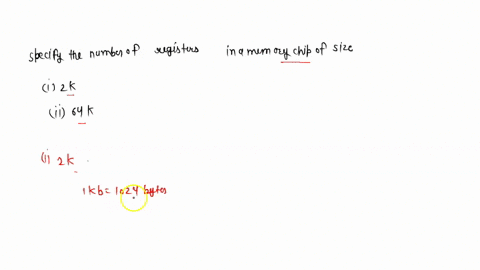 specify the number of registers in a memory chip of size
(i) 2k
(ii) 64 k
(i) 2k
1kb = 1024 bytes